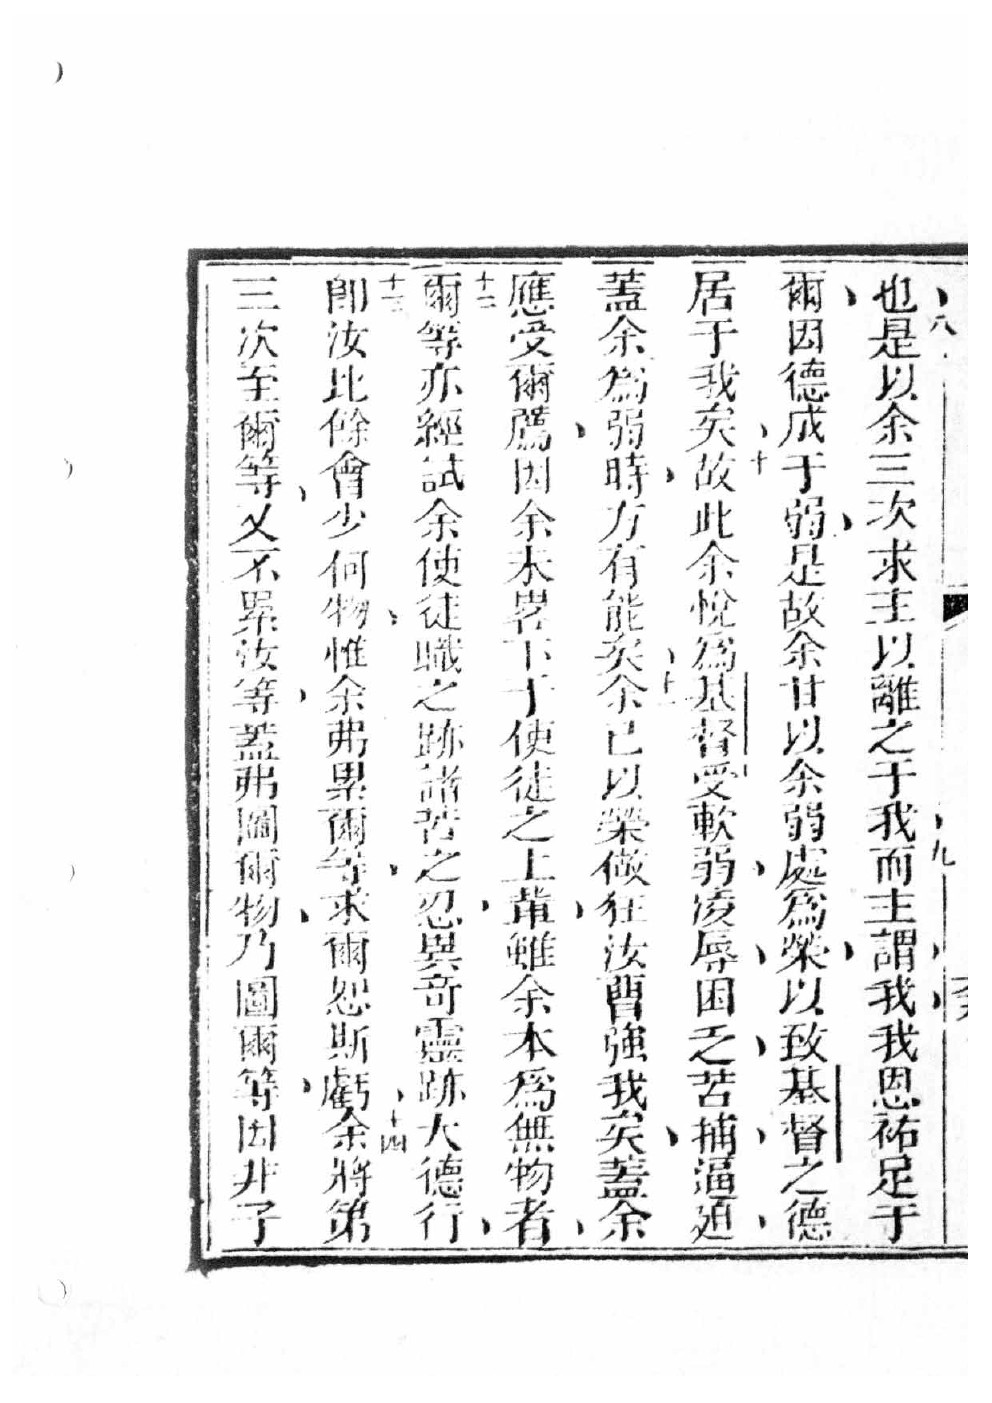 八
也是以余三次求主以離之于我九而主謂我我恩祐足于
爾因德成于弱是故余甘以余弱處為榮以致基督之德
居于我矣十故此余悅為基督受軟弱凌辱困乏苦捕逼廹
蓋余為弱時方有能矣十一余已以榮做狂汝曹強我矣蓋余
應受爾薦因余未畧下于使徒之上輩雖余本為無物者
十二爾等亦經試余使徒職之跡諸苦之忍異奇靈跡大德行
十三卽汝比餘會少何物惟余弗累爾等求爾恕斯虧十四余將第
三次至爾等又不累汝等蓋弗圖爾物乃圖爾等因非子